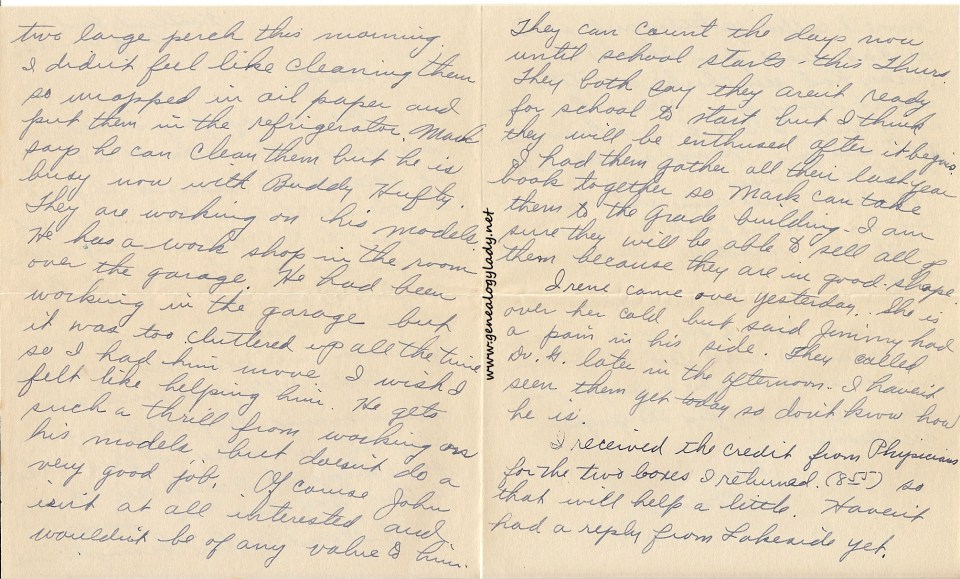 two large perch this morning.
I didn't feel like cleaning them
so wrapped in oil paper and
put them in the refrigerator. Mark
says he can clean them but he is
busy now with Buddy Hufty.
They are working on his models.
He has a work shop in the room
over the garage. He had been
working in the garage but
it was too cluttered up all the time
so I had him move. I wish I
felt like helping him. He gets
such a thrill from working on
his models but doesn't do a
very good job. Of course John
isn't at all interested and
wouldn't be of any value to him.
They can count the days now
until school starts - this Thurs.
They both say they aren't ready
for school to start but I think
they will be enthused after it begins.
I had them gather all their last year
book together so Mark can take
them to the Grade building - I am
sure they will be able to sell all of
them because they are in good shape.
Irene came over yesterday. She is
over her cold but said Jimmy had
a pain in his side. They called
Dr. H. later in the afternoon. I haven't
seen them yet today so don't know how
he is.
I received the credit from Physicians
for the two boxes I returned. (855) so
that will help a little. Haven't
had a reply from Lakeside yet.
www.genealogylady.net